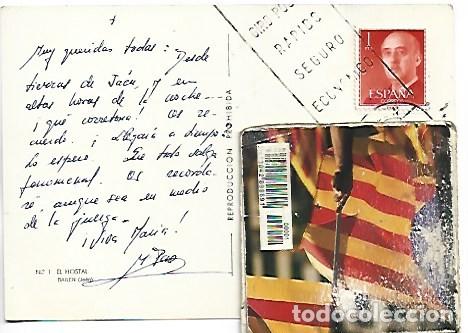 Muy queridas todas: Desde
tierras de Jaén, y en
altas horas de la noche...
¡qué carretera! Os re-
cuerdo. ¡Llegaré a tiempo
lo espero. Que todo salga
fenomenal. Os recorda-
ré aunque sea en medio
de la juerga.
¡Viva María!
Nº 1 EL HOSTAL
BAILEN
REPRODUCCION PROHIBIDA
GIRO POS
RAPIDO
SEGURO
ECONOMICO
1
ESPAÑA
CORREOS
todocoleccion.net